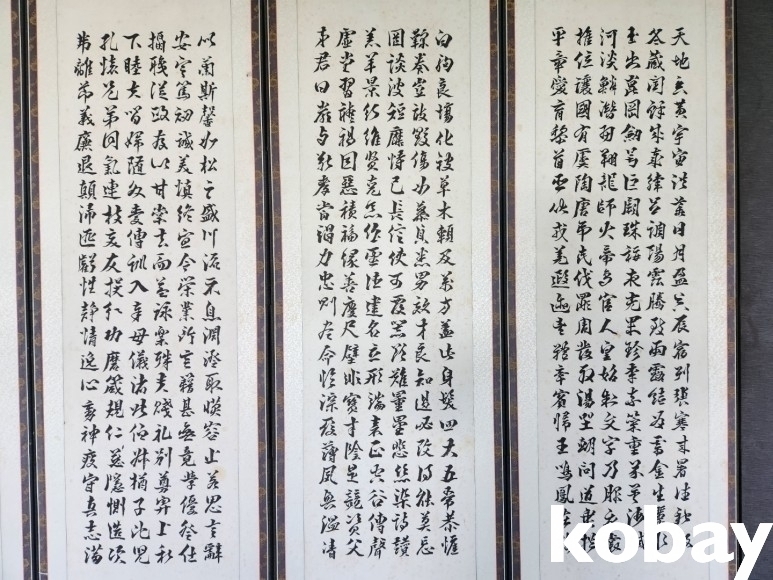 天地玄黃宇宙洪荒日月盈昃辰宿列張寒來暑往秋收
冬藏閏餘成歲律呂調陽雲騰致雨露結為霜金生麗水
玉出崑岡劍號巨闕珠稱夜光果珍李柰菜重芥薑海鹹
河淡鱗潛羽翔龍師火帝鳥官人皇始制文字乃服衣裳
推位讓國有虞陶唐弔民伐罪周發殷湯坐朝問道垂拱
平章愛育黎首臣伏戎羌遐邇壹體率賓歸王鳴鳳在
白駒食場化被草木賴及萬方蓋此身髮四大五常恭惟
鞠養豈敢毀傷女慕貞潔男效才良知過必改得能莫忘
罔談彼短靡恃己長信使可覆器欲難量墨悲絲染詩讚
羔羊景行維賢克念作聖德建名立形端表正空谷傳聲
虛堂習聽禍因惡積福緣善慶尺璧非寶寸陰是競資父
事君曰嚴與敬孝當竭力忠則盡命臨深履薄夙興溫清
似蘭斯馨如松之盛川流不息淵澄取映容止若思言辭
安定篤初誠美慎終宜令榮業所基籍甚無竟學優登仕
攝職從政存以甘棠去而益詠樂殊貴賤禮別尊卑上和
下睦夫唱婦隨外受傅訓入奉母儀諸姑伯叔猶子比兒
孔懷兄弟同氣連枝交友投分切磨箴規仁慈隱惻造次
弗離節義廉退顛沛匪虧性靜情逸心動神疲守真志滿
kobay